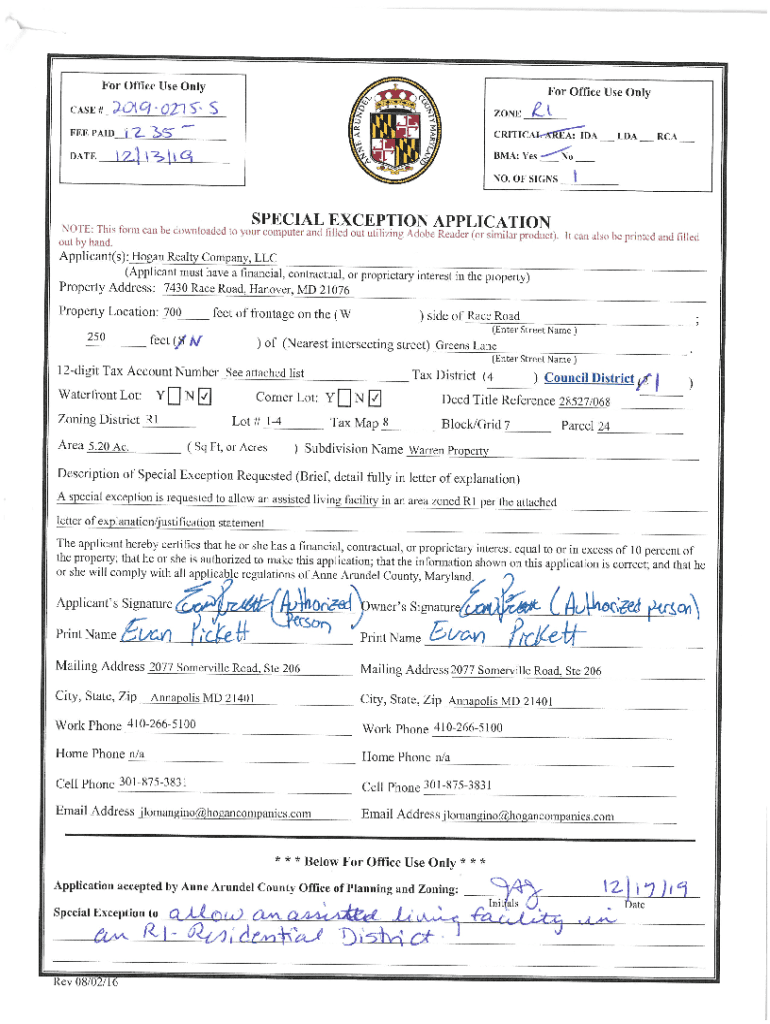 For Office Use Only
CASE # 2019-0275-S
FEE PAID 1235-
DATE 12/13/19
ANNE ARUNDEL COUNTY MARYLAND
For Office Use Only
ZONE R1
CRITICAL AREA: IDA ___ LDA ___ RCA ___
BMA: Yes ___ No ___
NO. OF SIGNS 1
SPECIAL EXCEPTION APPLICATION
NOTE: This form can be downloaded to your computer and filled out utilizing Adobe Reader (or similar product). It can also be printed and filled
out by hand.
Applicant(s): Hogan Realty Company, LLC
(Applicant must have a financial, contractual, or proprietary interest in the property)
Property Address: 7430 Race Road, Hanover, MD 21076
Property Location: 700 feet of frontage on the (W ) side of Race Road ;
(Enter Street Name )
250 feet ( N ) of (Nearest intersecting street) Greens Lane .
(Enter Street Name )
12-digit Tax Account Number See attached list Tax District (4 ) Council District 1 )
Waterfront Lot: Y ☐ N ☑ Corner Lot: Y ☐ N ☑ Deed Title Reference 28527/068
Zoning District R1 Lot # 1-4 Tax Map 8 Block/Grid 7 Parcel 24
Area 5.20 Ac. ( Sq Ft, or Acres ) Subdivision Name Warren Property
Description of Special Exception Requested (Brief, detail fully in letter of explanation)
A special exception is requested to allow an assisted living facility in an area zoned R1 per the attached
letter of explanation/justification statement
The applicant hereby certifies that he or she has a financial, contractual, or proprietary interest equal to or in excess of 10 percent of
the property; that he or she is authorized to make this application; that the information shown on this application is correct; and that he
or she will comply with all applicable regulations of Anne Arundel County, Maryland.
Applicant's Signature (Authorized Person) Owner's Signature (Authorized person)
Print Name Evan Pickett Print Name Evan Pickett
Mailing Address 2077 Somerville Road, Ste 206 Mailing Address 2077 Somerville Road, Ste 206
City, State, Zip Annapolis MD 21401 City, State, Zip Annapolis MD 21401
Work Phone 410-266-5100 Work Phone 410-266-5100
Home Phone n/a Home Phone n/a
Cell Phone 301-875-3831 Cell Phone 301-875-3831
Email Address jlomangino@hogancompanies.com Email Address jlomangino@hogancompanies.com
* * * Below For Office Use Only * * *
Application accepted by Anne Arundel County Office of Planning and Zoning: 12/17/19
Initials Date
Special Exception to allow an assisted living facility in
an R1-Residential District.
Rev 08/02/16